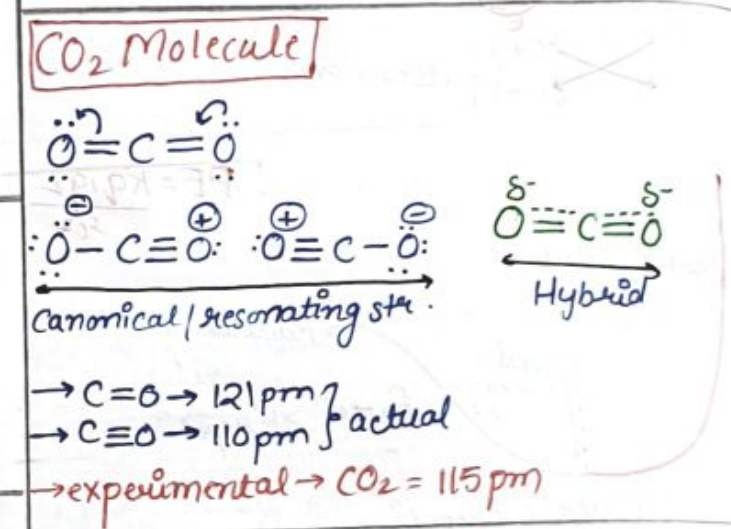 CO₂ Molecule
:Ö=C=Ö:
⊖ ⊕ ⊕ ⊖
:Ö–C≡O: :O≡C–Ö:
δ- δ-
O=C=O
Canonical/resonating str.
Hybrid
→ C=O → 121pm
→ C≡O → 110pm } actual
→experimental → CO₂ = 115 pm